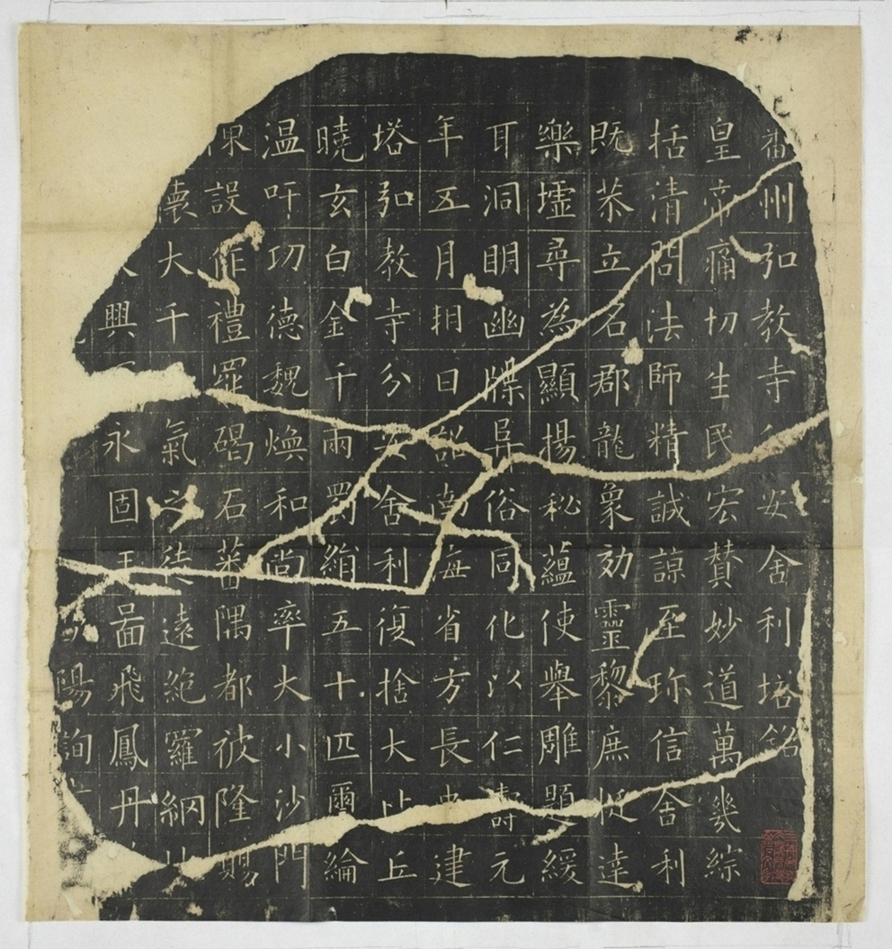 番州弘教寺安舍利塔銘
皇帝痛切生民宏賛妙道萬幾綜
括清問法師精誠諒至珎信舍利
既恭立名郡龍象効靈黎庶挺達
樂墟尋為顯揚秘蘊使舉雕題緩
耳洞明幽牒異俗同化以仁壽元
年五月朔日南海省方長史建
塔弘教寺分安舍利復捨大比丘
曉玄白金千兩罽絹五十匹爾綸
温吁功德魏煥和尚率大小沙門
設作禮羅碣石蕃隅都彼隆賜
懷大千氣之徒遠絶羅網
興永固王啚飛鳳丹
陽詢